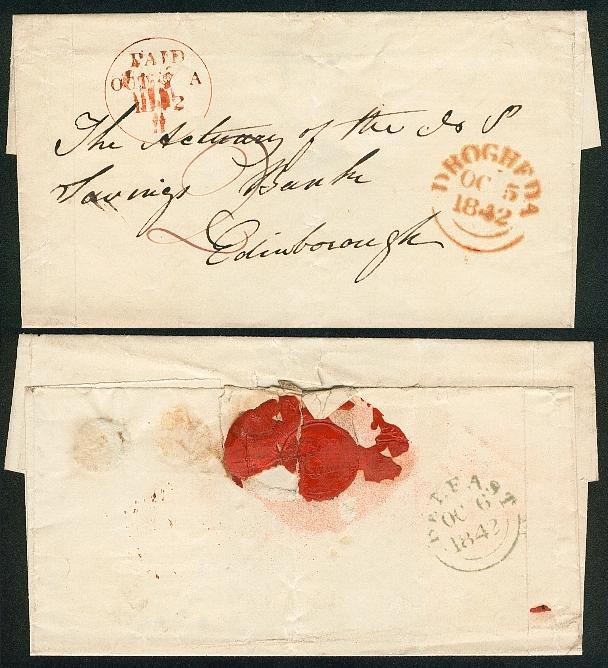 PAID
A
1842
The Actuary of the
Savings Bank
Edinborough
2
DROGHEDA
OC 5
1842
BELFAST
OC 6
1842